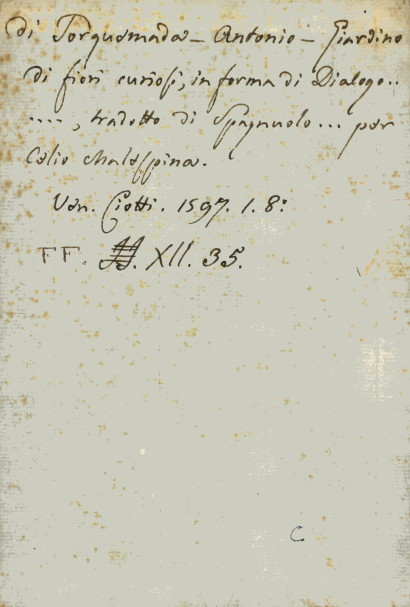 di Torquemada - Antonio - Giardino
di fiori curiosi, in forma di Dialogo..
...., tradotto di Spagnuolo... per
Celio Malespina.
Ven. Ciotti. 1597. 1. 8:
FF. XII. 35.
C